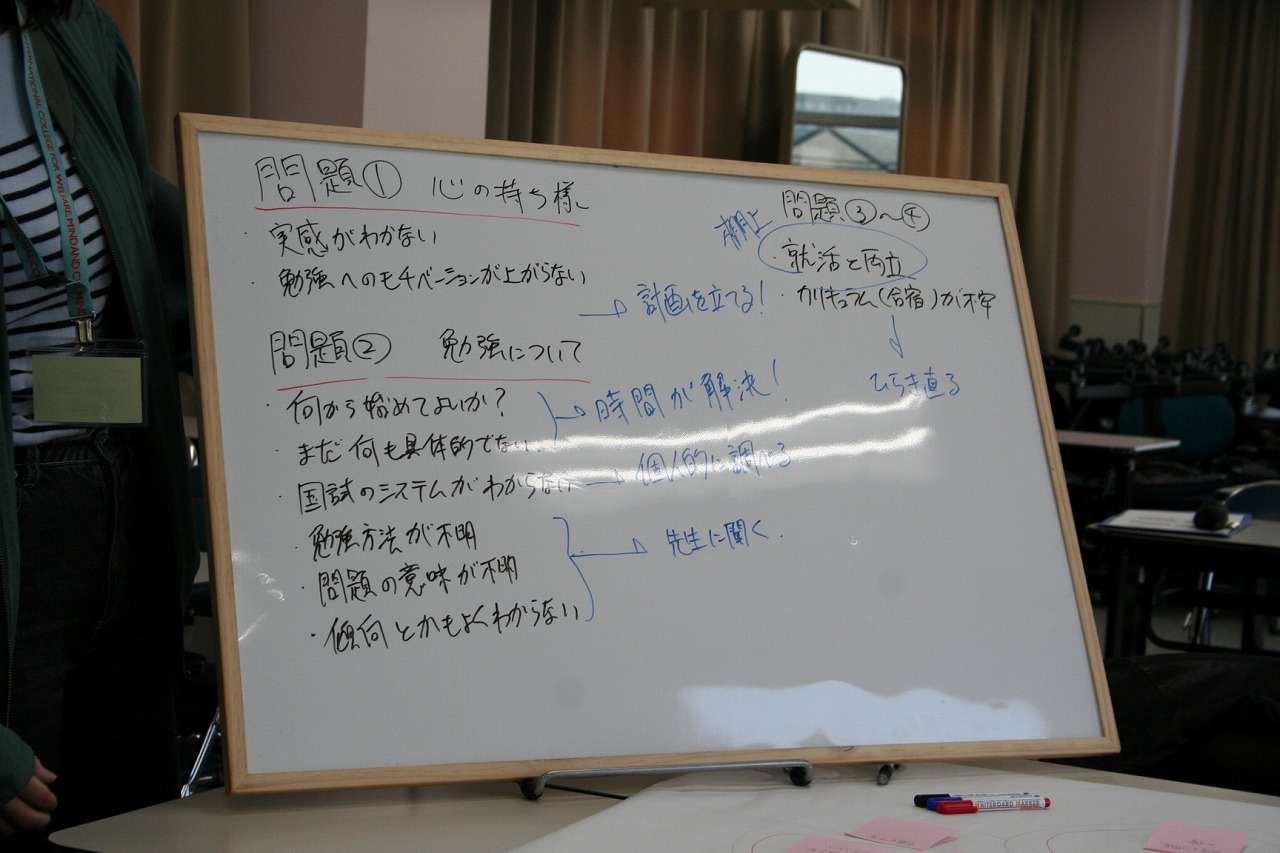 問題① 心の持ち様
・実感がわかない
・勉強へのモチベーションが上がらない
→ 計画を立てる!
問題② 勉強について
・何から始めてよいか?
・まだ何も具体的でない
→ 時間が解決!
・国試のシステムがわからない → 個人的に調べる
・勉強方法が不明
・問題の意味が不明
・傾向とかもよくわからない
→ 先生に聞く.
問題③~④
棚上
・就活と両立
・カリキュラム(合宿)が不安
↓
ひらき直る
INTERNATIONAL COLLEGE FOR WELFARE, MIND AND